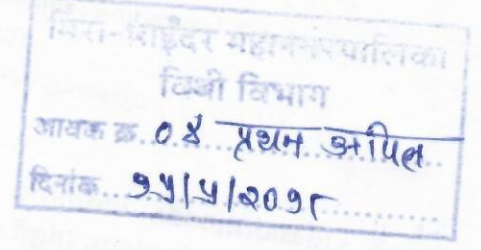 मिरा-भाईंदर महानगरपालिका
विधी विभाग
आवक क्र. ०४ प्रथम अपिल
दिनांक...१५/५/२०१८